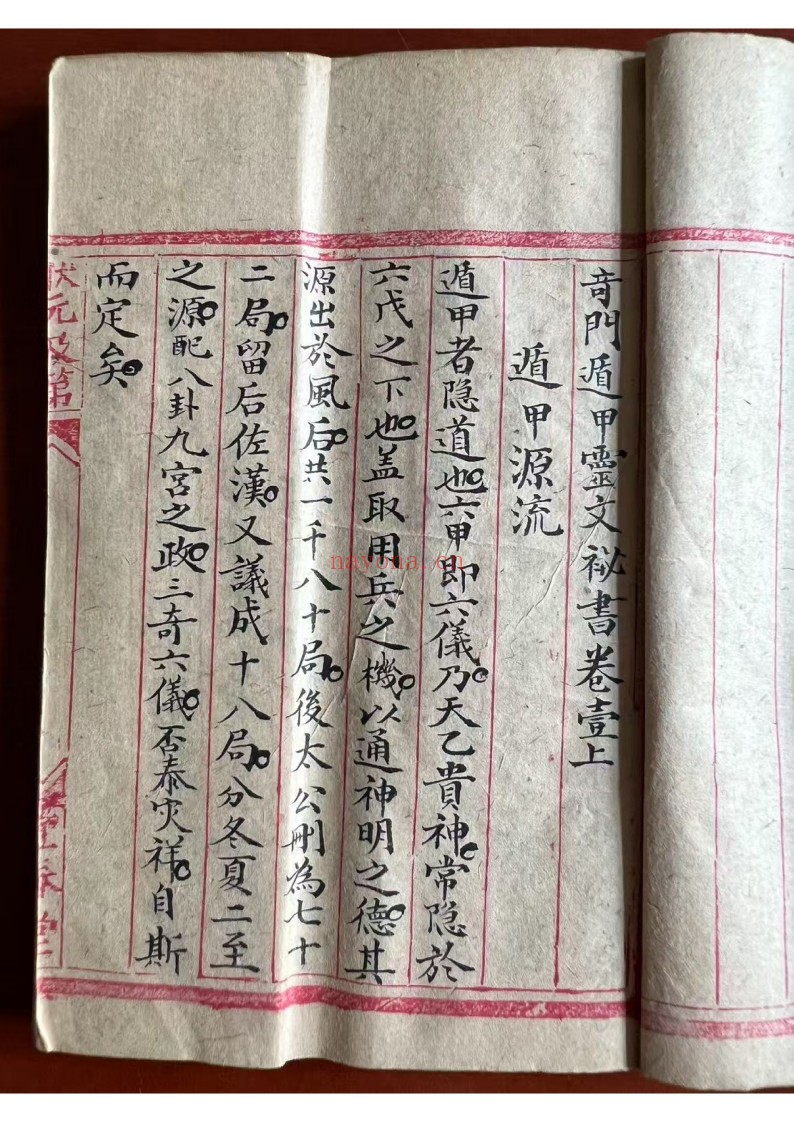 奇門遁甲靈文祕書卷壹上
遁甲源流
遁甲者隐道也。六甲即六儀乃。天乙貴神。常隐於
六戊之下也。盖取用兵之機。以通神明之德。其
源出於風后。共一千八十局。後太公刪為七十
二局。留后佐漢。又議成十八局。分冬夏二至
之源。配八卦九宮之政。三奇六儀。否泰灾祥。自斯
而定矣。
狀元及第
nayona.cn